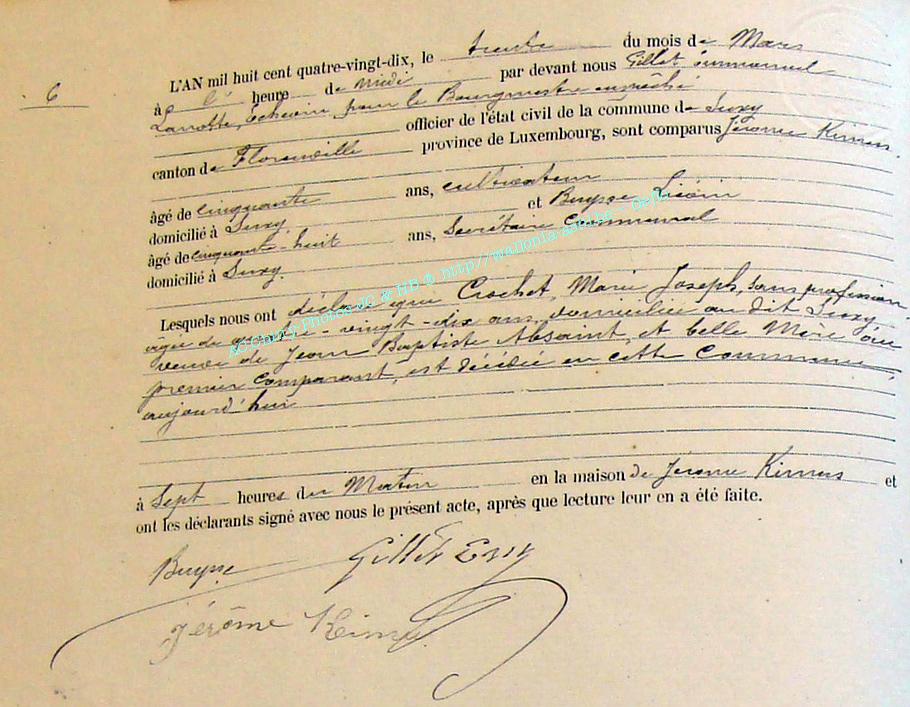 6
L'AN mil huit cent quatre-vingt-dix, le trente du mois de Mars
à l' heure de Midi par devant nous Gillet Emmanuel
Larotte, échevin, pour le Bourgmestre empêché
officier de l'état civil de la commune de Suxy
canton de Florenville province de Luxembourg, sont comparus Jérôme
âgé de cinquante ans, cultivateur
domicilié à Suxy et Buysse
âgé de cinquante-huit ans, Secrétaire Communal
domicilié à Suxy.
Lesquels nous ont déclaré que Crochet, Marie Joseph, sans profession
âgée de quatre-vingt-dix ans, domiciliée au dit Suxy
veuve de Jean Baptiste Absaint, et belle Mère du
premier comparant, est décédée en cette Commune,
aujourd'hui
à Sept heures du Matin en la maison de Jérôme et
ont les déclarants signé avec nous le présent acte, après que lecture leur en a été faite.
Buysse Gillet
Jérôme